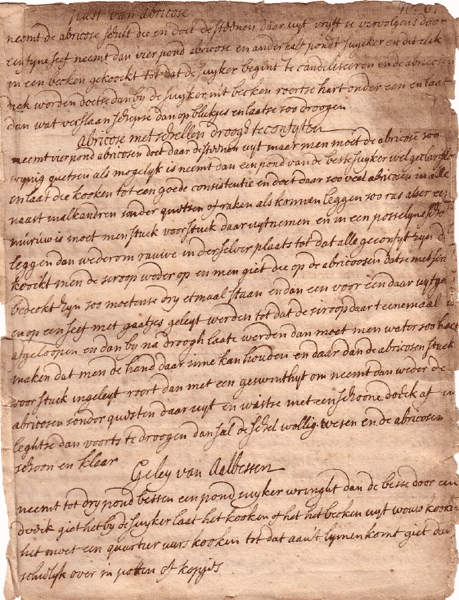 Past van abricose
neemt de abricose schilt die en doet de steenen daar uyt vryft se vervolgens door
een fyn seef neemt dan vier pond abricose en anderhalf pondt suyker en dit elck
in een becken gekoockt tot dat de suyker begint te candiliseeren en de abricosen
dick worden doetse dan by de suyker uit becken roertse hart onder een en laat
dan wat verslaan schepse dan op blickjes en laatse soo droogen
Abricose met schellen droogh te confyten
neemt vier pond abricosen doet daar de steenen uyt maar men moet de abricose soo
weynig quetsen als mogelyk is neemt dan een pond van de beste suyker wel geclarifi
en laat die kooken tot een goede consistentie en doet daar soo veel abricosen in alse
naast malkandren sonder quetsen of raken als konnen leggen soo ras alser een
murruw is moet men stuck voor stuck daar uytnemen en in een posselyn
leggen dan wederom rauwe in derselver plaats tot dat alle geconfyt zyn
koockt men de siroop weder op en men giet die op de abricoosen datse met
bedeckt zyn soo moetense dry etmaal staan en dan een voor een daar uyt
en op een seef met gaatjes geleyt werden tot dat de siroop daar t'eenemaal
afgeloopen en dan by na droogh laate werden dan moet men water soo heet
maken dat men de hand daar inne kan houden en daar dan de abricosen stuck
voor stuck ingeleyt roert dan met een om neemt dan weder de
abricosen sonder quetsen daar uyt en wastse met een schoone doeck af en
leghtse dan voorts te droogen dan sal de schel wollig wesen en de abricosen
schoon en klaar
Geley van Aalbessen
neemt tot dry pond bessen een pond suyker wringht dan de besse door een
doeck giet het by de suyker laat het kooken of het het becken uyt wou kooken
het moet een quartier uurs kooken tot dat aant lymen komt giet dan
schielyk over in potten of kopjes